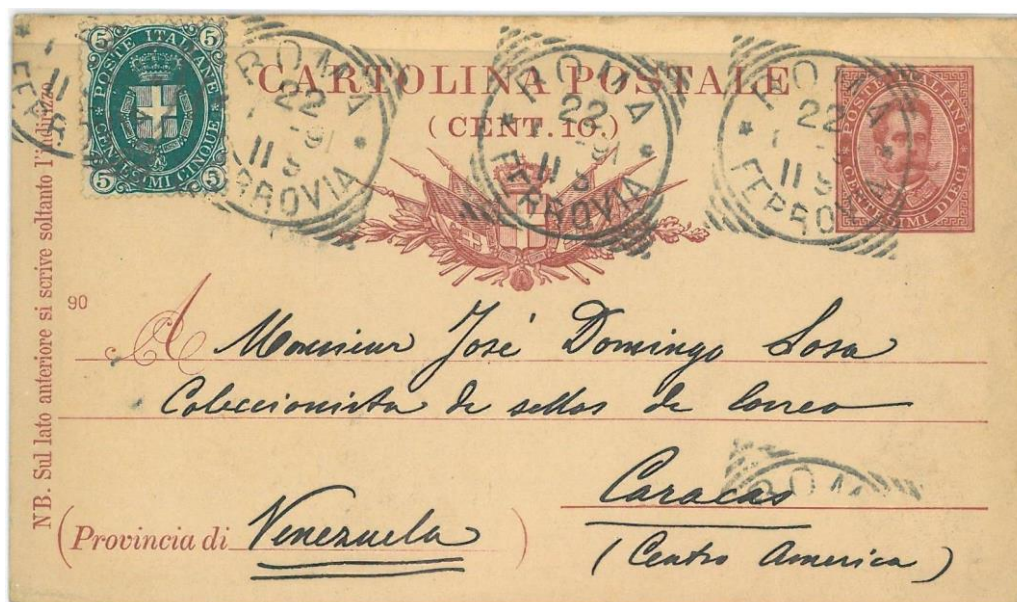 5 5
POSTE ITALIANE
CENTESIMI CINQUE
5 5
ROMA
22
91
11 S
FERROVIA
CARTOLINA POSTALE
(CENT. 10.)
ROMA
22
91
11 S
FERROVIA
ROMA
22
11 S
FERROVIA
POSTE ITALIANE
CENTESIMI DIECI
NB. Sul lato anteriore si scrive soltanto l'indirizzo.
90
A Monsieur José Domingo Sosa
Coleccionista de sellos de Correo
Caracas
(Provincia di Venezuela)
(Centro America)
ROM